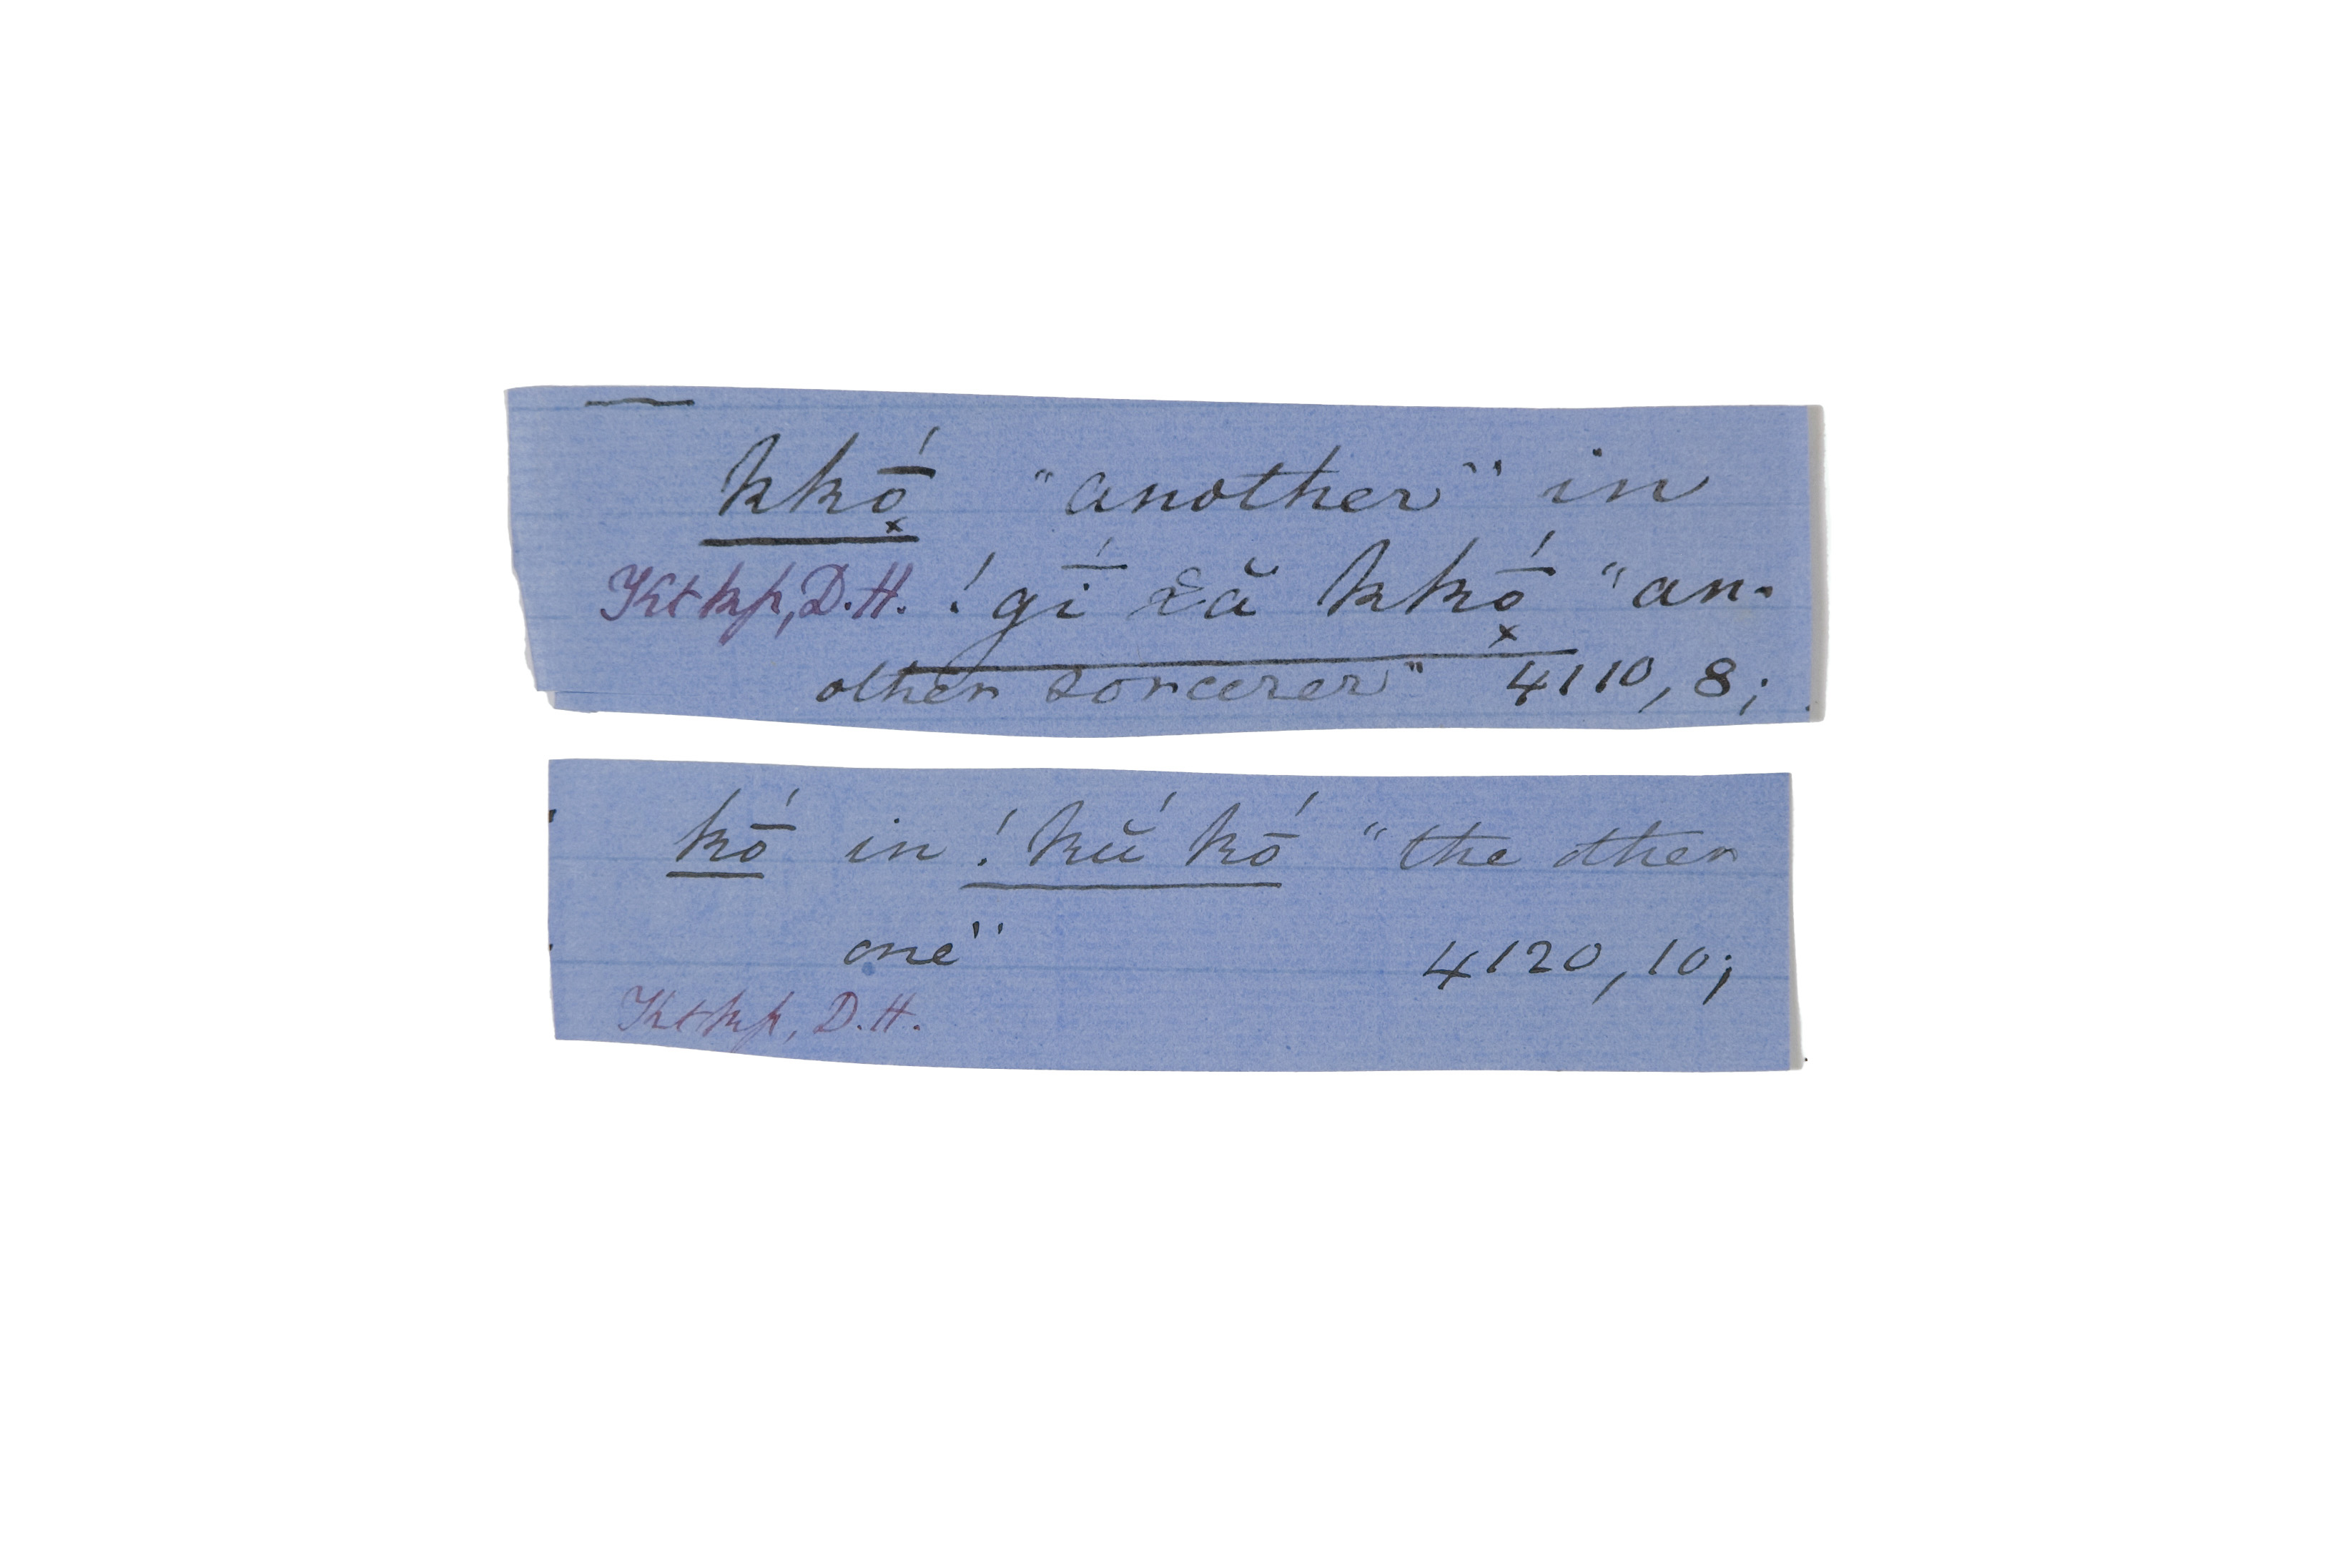 kkṓ̽ "another" in
Ktkp, D.H. !gī́ xă kkṓ̽ "an-
other sorcerer" 4110, 8;
kṓ in !kŭ́ kṓ "the other
one" 4120, 10;
Ktkp, D.H.